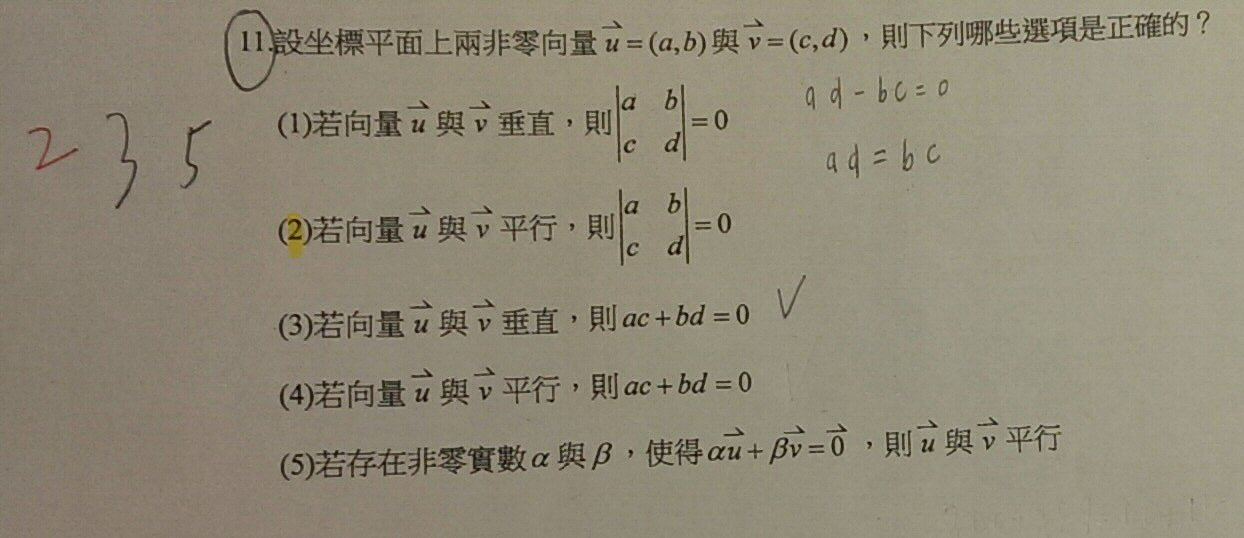 11.設坐標平面上兩非零向量 u⃑ = (a,b) 與 v⃑ = (c,d)，則下列哪些選項是正確的？
ad - bc = 0
(1)若向量 u⃑ 與 v⃑ 垂直，則 |a b; c d| = 0
ad = bc
2 3 5
(2)若向量 u⃑ 與 v⃑ 平行，則 |a b; c d| = 0
(3)若向量 u⃑ 與 v⃑ 垂直，則 ac + bd = 0 ✓
(4)若向量 u⃑ 與 v⃑ 平行，則 ac + bd = 0
(5)若存在非零實數 α 與 β，使得 αu⃑ + βv⃑ = 0⃑，則 u⃑ 與 v⃑ 平行